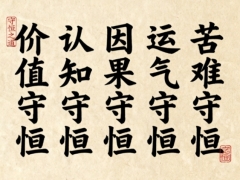 守恒之道
价值守恒
认知守恒
因果守恒
运气守恒
苦难守恒